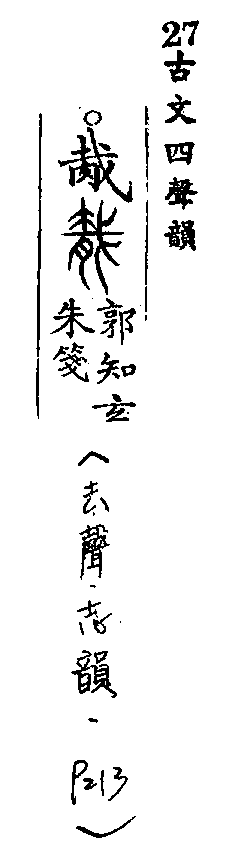 27古文四聲韻
○胾
郭知玄
朱箋
（去聲．志韻、P213）